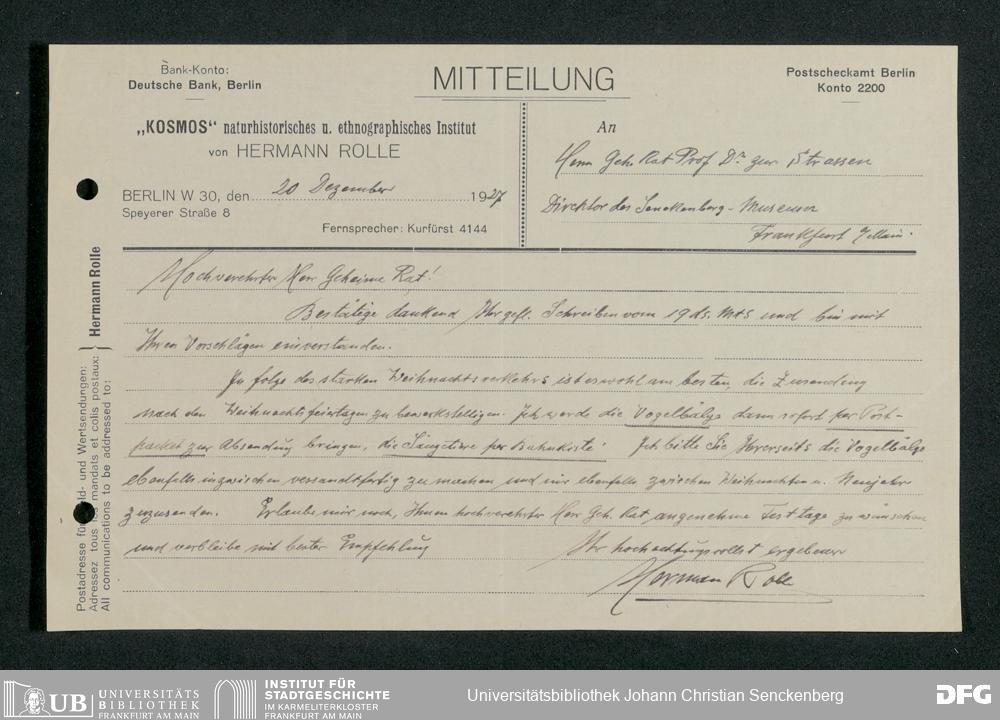 Bank-Konto:
Deutsche Bank, Berlin
MITTEILUNG
Postscheckamt Berlin
Konto 2200
„KOSMOS“ naturhistorisches u. ethnographisches Institut
von HERMANN ROLLE
BERLIN W 30, den 20 Dezember 1927
Speyerer Straße 8
Fernsprecher: Kurfürst 4144
An
Herrn Geh. Rat Prof Dr zur Strassen
Direktor des Senckenberg-Museum
Frankfurt a/Main.
Hochverehrter Herr Geheime Rat!
Bestätige dankend Ihr gefl. Schreiben vom 19 ds. Mts und bin mit
Ihren Vorschlägen einverstanden.
In folge des starken Weihnachtsverkehrs ist es wohl am besten, die Zusendung
nach den Weihnachtsfeiertagen zu bewerkstelligen. Ich werde die Vogelbälge dann sofort per Post-
packet zur Absendung bringen, die Säugetiere per Bahnkiste. Ich bitte Sie Ihrerseits die Vogelbälge
ebenfalls inzwischen versandtfertig zu machen und mir ebenfalls zwischen Weihnachten u. Neujahr
zuzusenden. Erlaube mir noch, Ihnen hochverehrter Herr Geh. Rat angenehme Festtage zu wünschen
und verbleibe mit bester Empfehlung
Ihr hochachtungsvollst ergebener
Herman Rolle
Postadresse für Geld- und Wertsendungen:
Adressez tous les mandats et colis postaux:
All communications to be addressed to:
Hermann Rolle
UB UNIVERSITÄTS
BIBLIOTHEK
FRANKFURT AM MAIN
INSTITUT FÜR
STADTGESCHICHTE
IM KARMELITERKLOSTER
FRANKFURT AM MAIN
Universitätsbibliothek Johann Christian Senckenberg
DFG